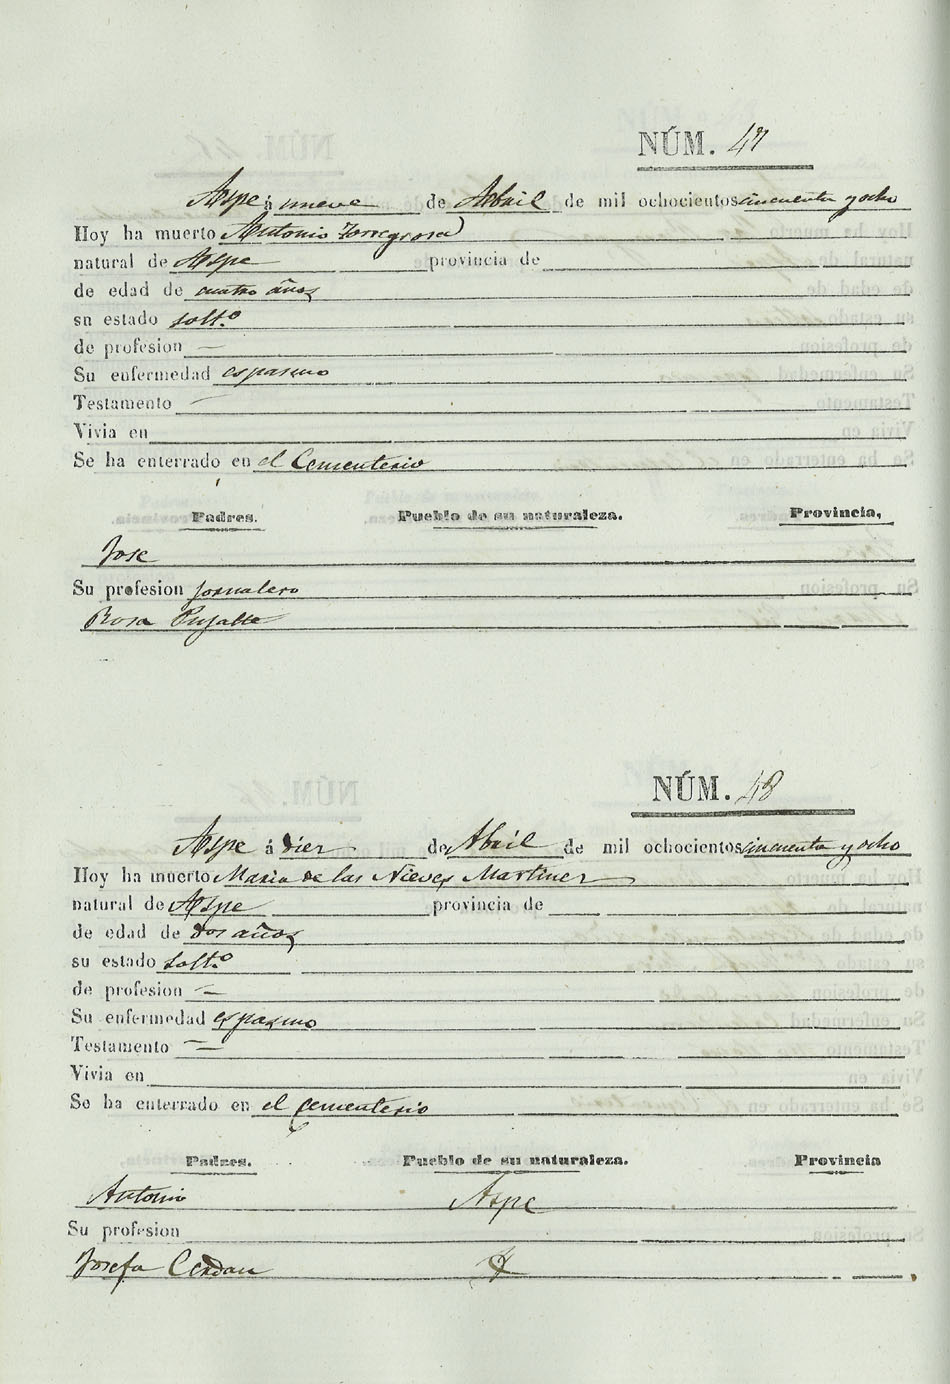 NÚM. 47
Aspe á nueve de Abril de mil ochocientos cincuenta y ocho
Hoy ha muerto Antonio Torregrosa
natural de Aspe provincia de
de edad de cuatro años
sn estado solt.º
de profesion —
Su enfermedad espasmo
Testamento —
Vivia en
Se ha enterrado en el Cementerio
Padres. Pueblo de su naturaleza. Provincia,
Jose
Su profesion jornalero
Rosa Pujalte
NÚM. 48
Aspe á diez de Abril de mil ochocientos cincuenta y ocho
Hoy ha muerto Maria de las Nieves Martinez
natural de Aspe provincia de
de edad de dos años
su estado solt.º
de profesion —
Su enfermedad espasmo
Testamento —
Vivia en
Se ha enterrado en el cementerio
Padres. Pueblo de su naturaleza. Provincia
Antonio Aspe
Su profesion
Josefa Cerdan